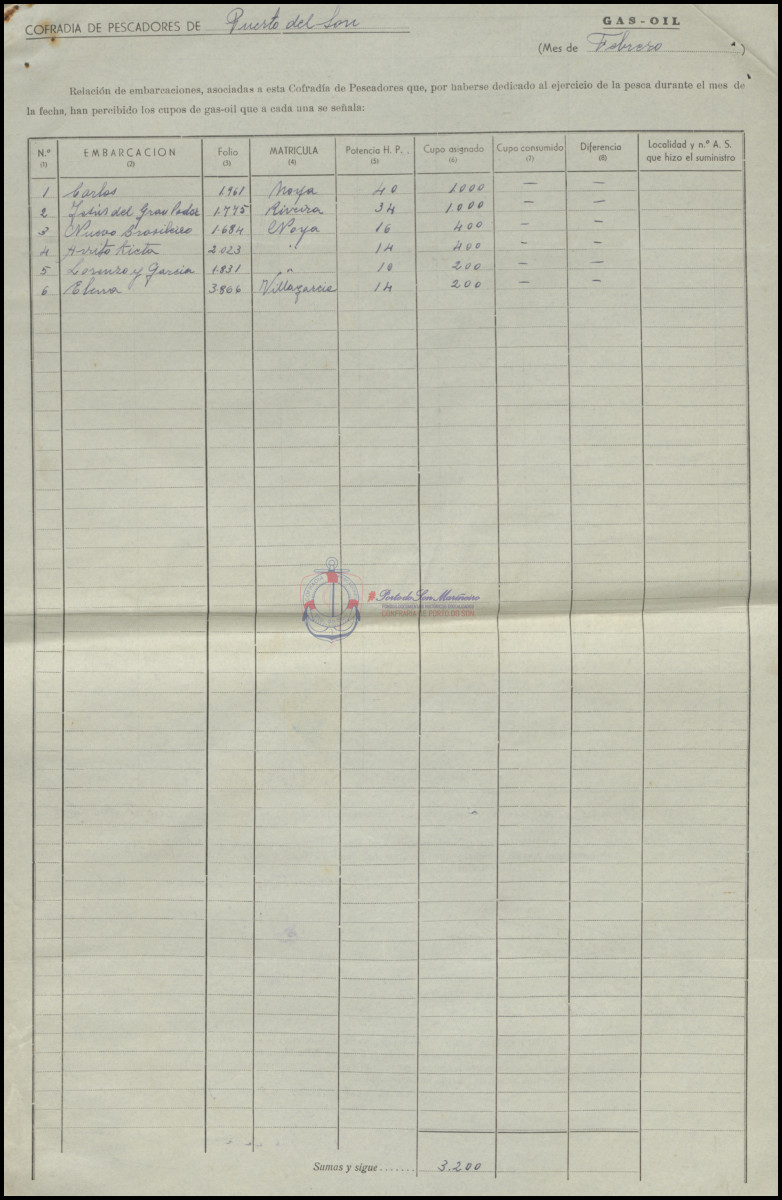 COFRADIA DE PESCADORES DE Puerto del Son
GAS-OIL
(Mes de Febrero )
Relación de embarcaciones, asociadas a esta Cofradía de Pescadores que, por haberse dedicado al ejercicio de la pesca durante el mes de
la fecha, han percibido los cupos de gas-oil que a cada una se señala:
N.º EMBARCACION Folio MATRICULA Potencia H. P. . Cupo asignado Cupo consumido Diferencia Localidad y n.º A. S.
(1) (2) (3) (4) (5) (6) (7) (8) que hizo el suministro
1 Carlos 1.961 Noya 40 1.000 — —
2 Jesús del Gran Poder 1.775 Riveira 34 1.000 — —
3 Nuevo Brasileiro 1.684 Noya 16 400 — —
4 2.023 " 14 400 — —
5 Lorenzo y Garcia 1.831 " 10 200 — —
6 Elena 3.866 Villagarcia 14 200 — —
Porto do Son Mariñeiro
CONFRARÍA DE PORTO DO SON
Sumas y sigue....... 3.200